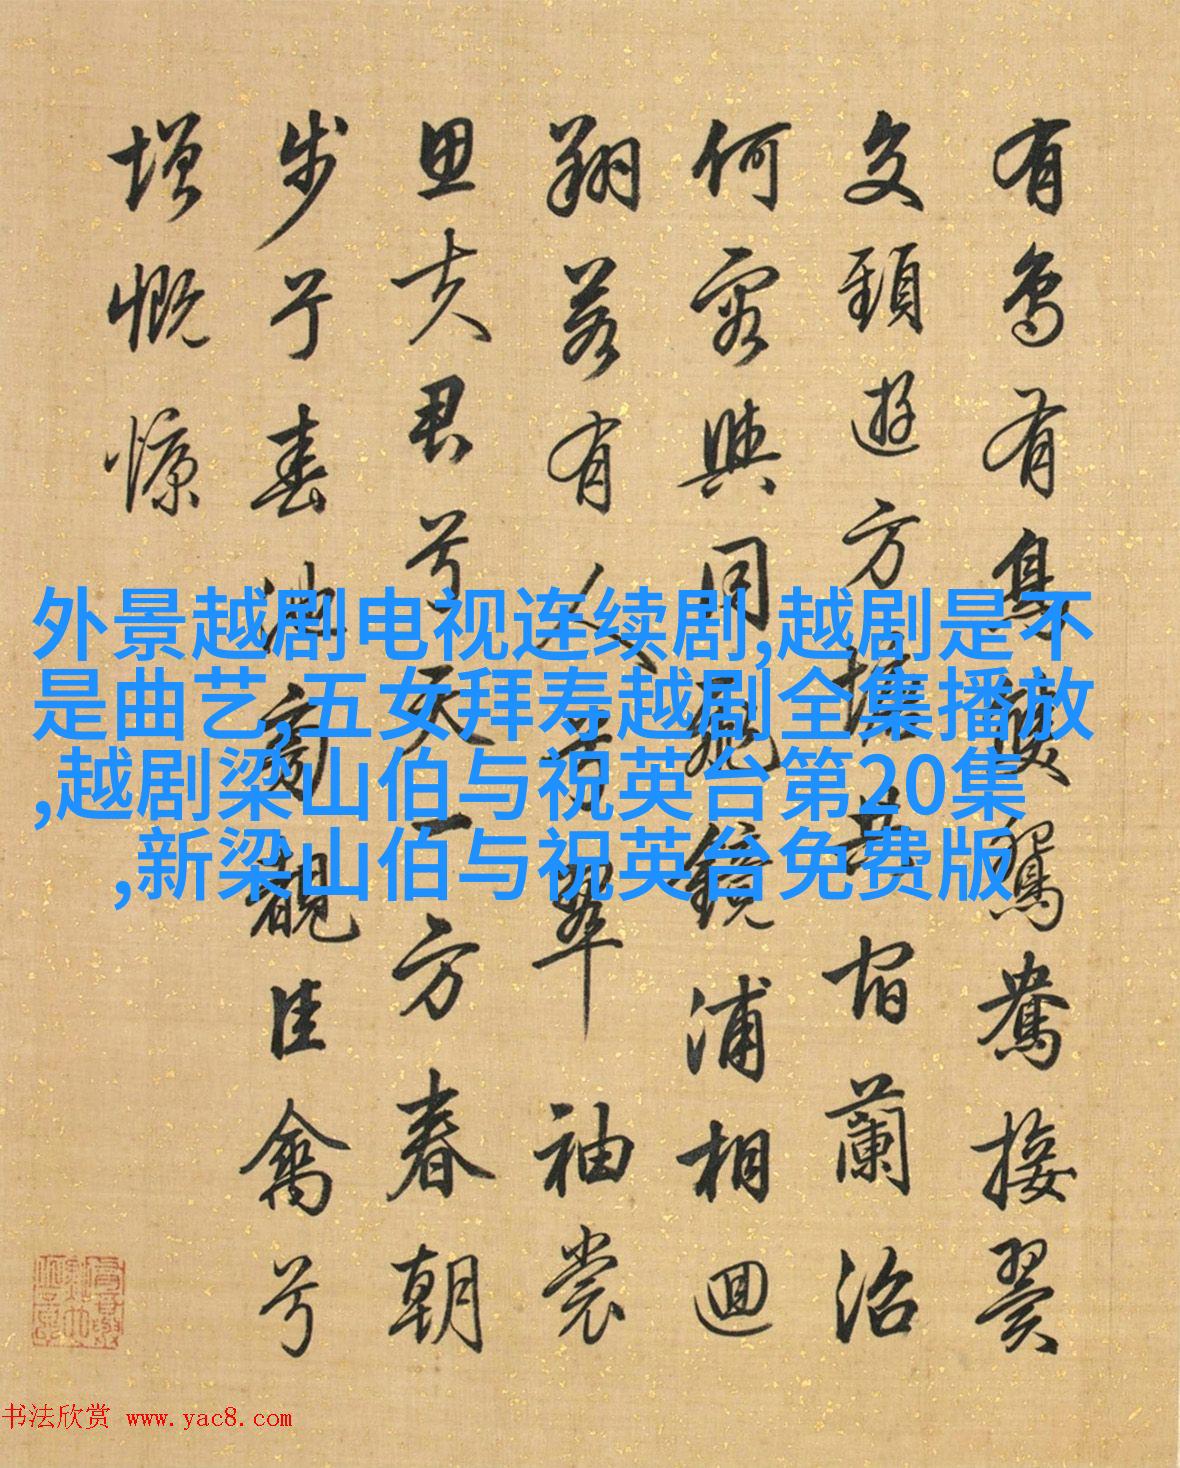 有鳥有鳥雙鴛鴦接翼
交頸遊方塘共宿蘭沼
何容與同飛鏡浦相回
翔若有人兮翠袖裳
思夫君兮天一方春朝
步兮春裔覩佳禽兮
增慨慷
外景越剧电视连续剧,越剧是不
是曲艺,五女拜寿越剧全集播放
,越剧梁山伯与祝英台第20集
,新梁山伯与祝英台免费版
书法欣赏 www.yac8.com